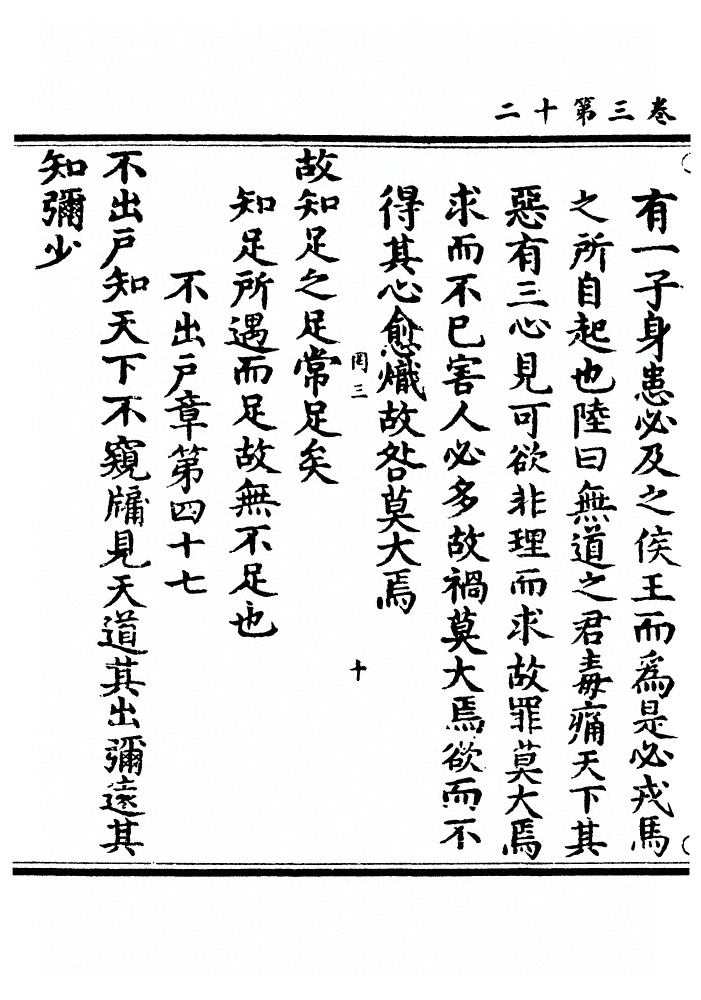 二十第三卷
有一子身患必及之侯王而為是必戎馬
之所自起也陸曰無道之君毒痛天下其
惡有三心見可欲非理而求故罪莫大焉
求而不已害人必多故禍莫大焉欲而不
得其心愈熾故咎莫大焉
罔三
十
故知足之足常足矣
知足所遇而足故無不足也
不出戶章第四十七
不出戶知天下不窺牖見天道其出彌遠其
知彌少